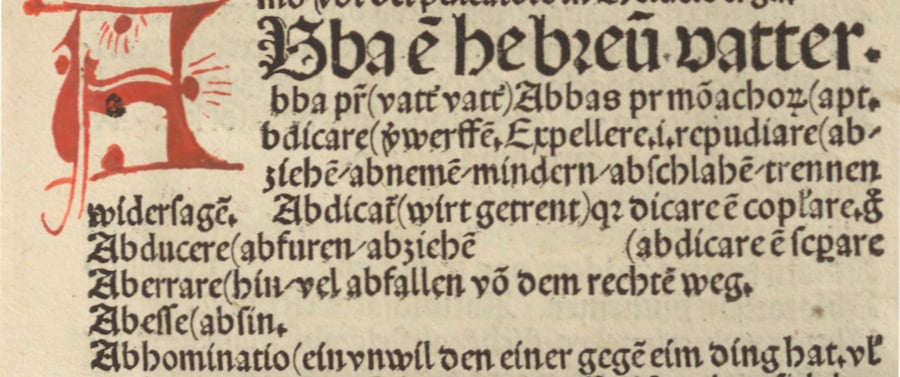 ABba ē hebreū vatter.
bba pr̄(vatt̛ vatt̛)Abbas pr mōachoꝝ(apt.
bdicare(ꝟwerffē.Expellere.i.repudiare(ab⸗
ziehē/abnemē/mindern/abſchlahē/trennen
widerſagē. Abdicat̛(wirt getrent)qꝛ dicare ē copl̛are.g̊
Abducere(abfuren/abziehē (abdicare ē ſeꝑare
Aberrare(hin/vel abfallen võ dem rechtē weg.
Abeſſe(abſin.
Abhominatio(ein vnwil den einer gegē eim ding hat.vl̛